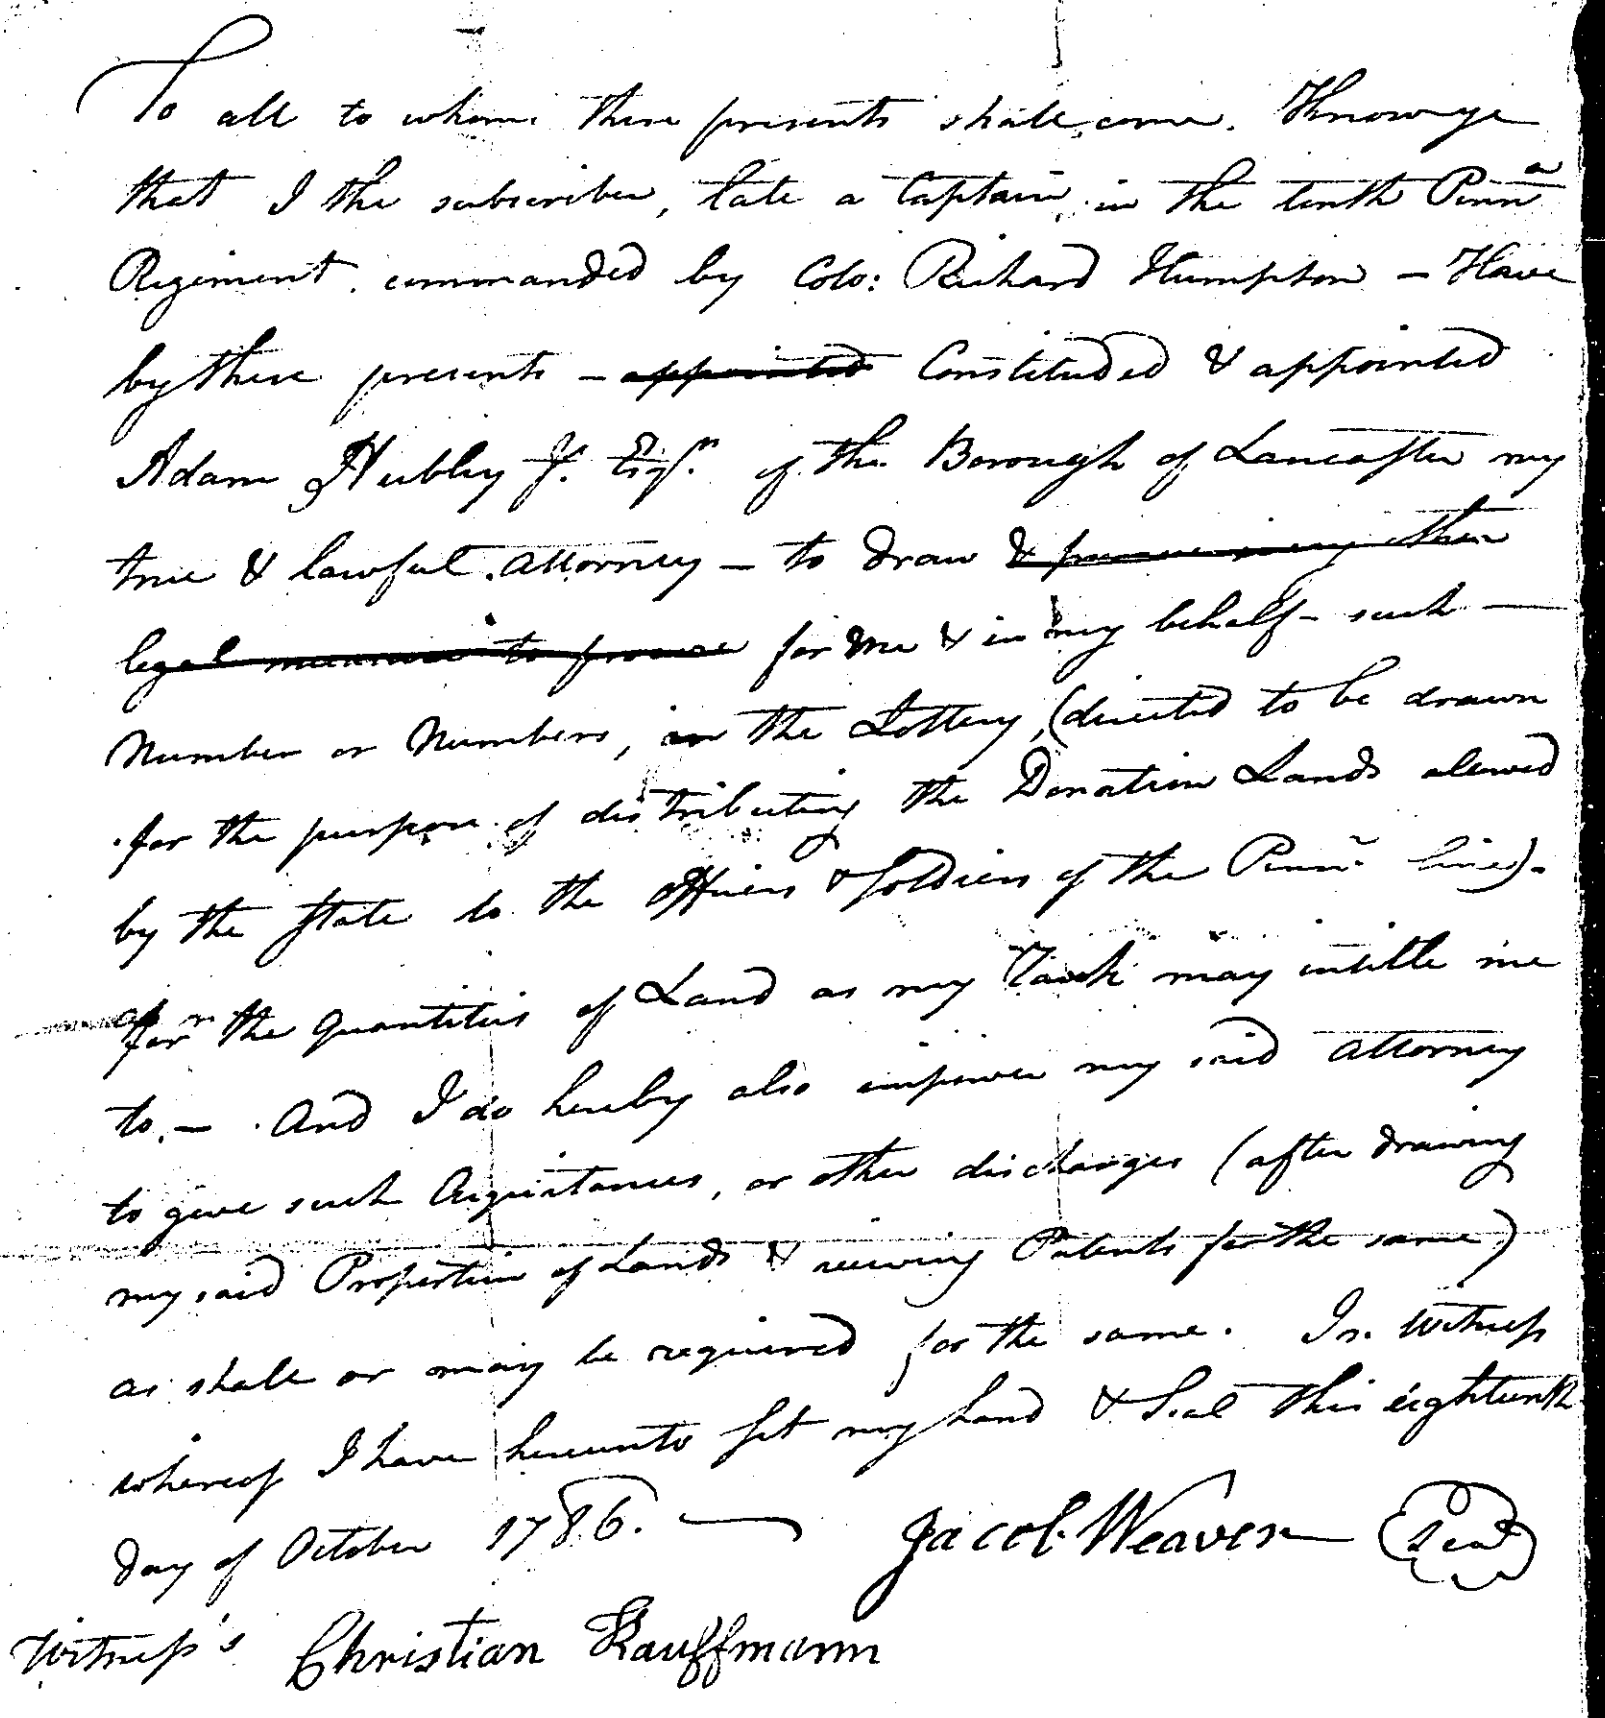 To all to whom these presents shall come. Know ye
that I the subscriber, late a Captain in the tenth Penna
Regiment commanded by Colo: Richard Humpton – Have
by these presents – appointed Constituded & appointed
Adam Hubley Jr. Esqr. of the Borough of Lancaster my
true & lawful attorney – to draw & pursue every other
legal measure to procure for me & in my behalf – such –
Number or Numbers, in the Lottery, (directed to be drawn
for the purpose of distributing the Donation Lands alowed
by the State to the Officers & Soldiers of the Penna. line) –
for the quantities of Land as my Rank may intitle me
to. – And I do hereby also impower my said attorney
to give such Acquitances, or other discharges (after drawing
my said Proportion of Lands & receiving Patents for the same)
as shall or may be required for the same. In Witness
whereof I have hereunto set my hand & Seal this eighteenth
day of October 1786. — Jacob Weaver Seal
Witness's Christian Kauffmann